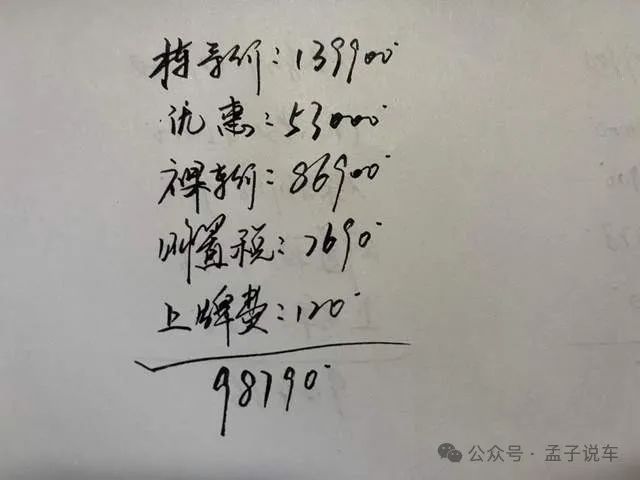 指导价:139900
优惠:53000
裸车价:86900
购置税:7690
上牌费:120
98790
公众号·孟子说车